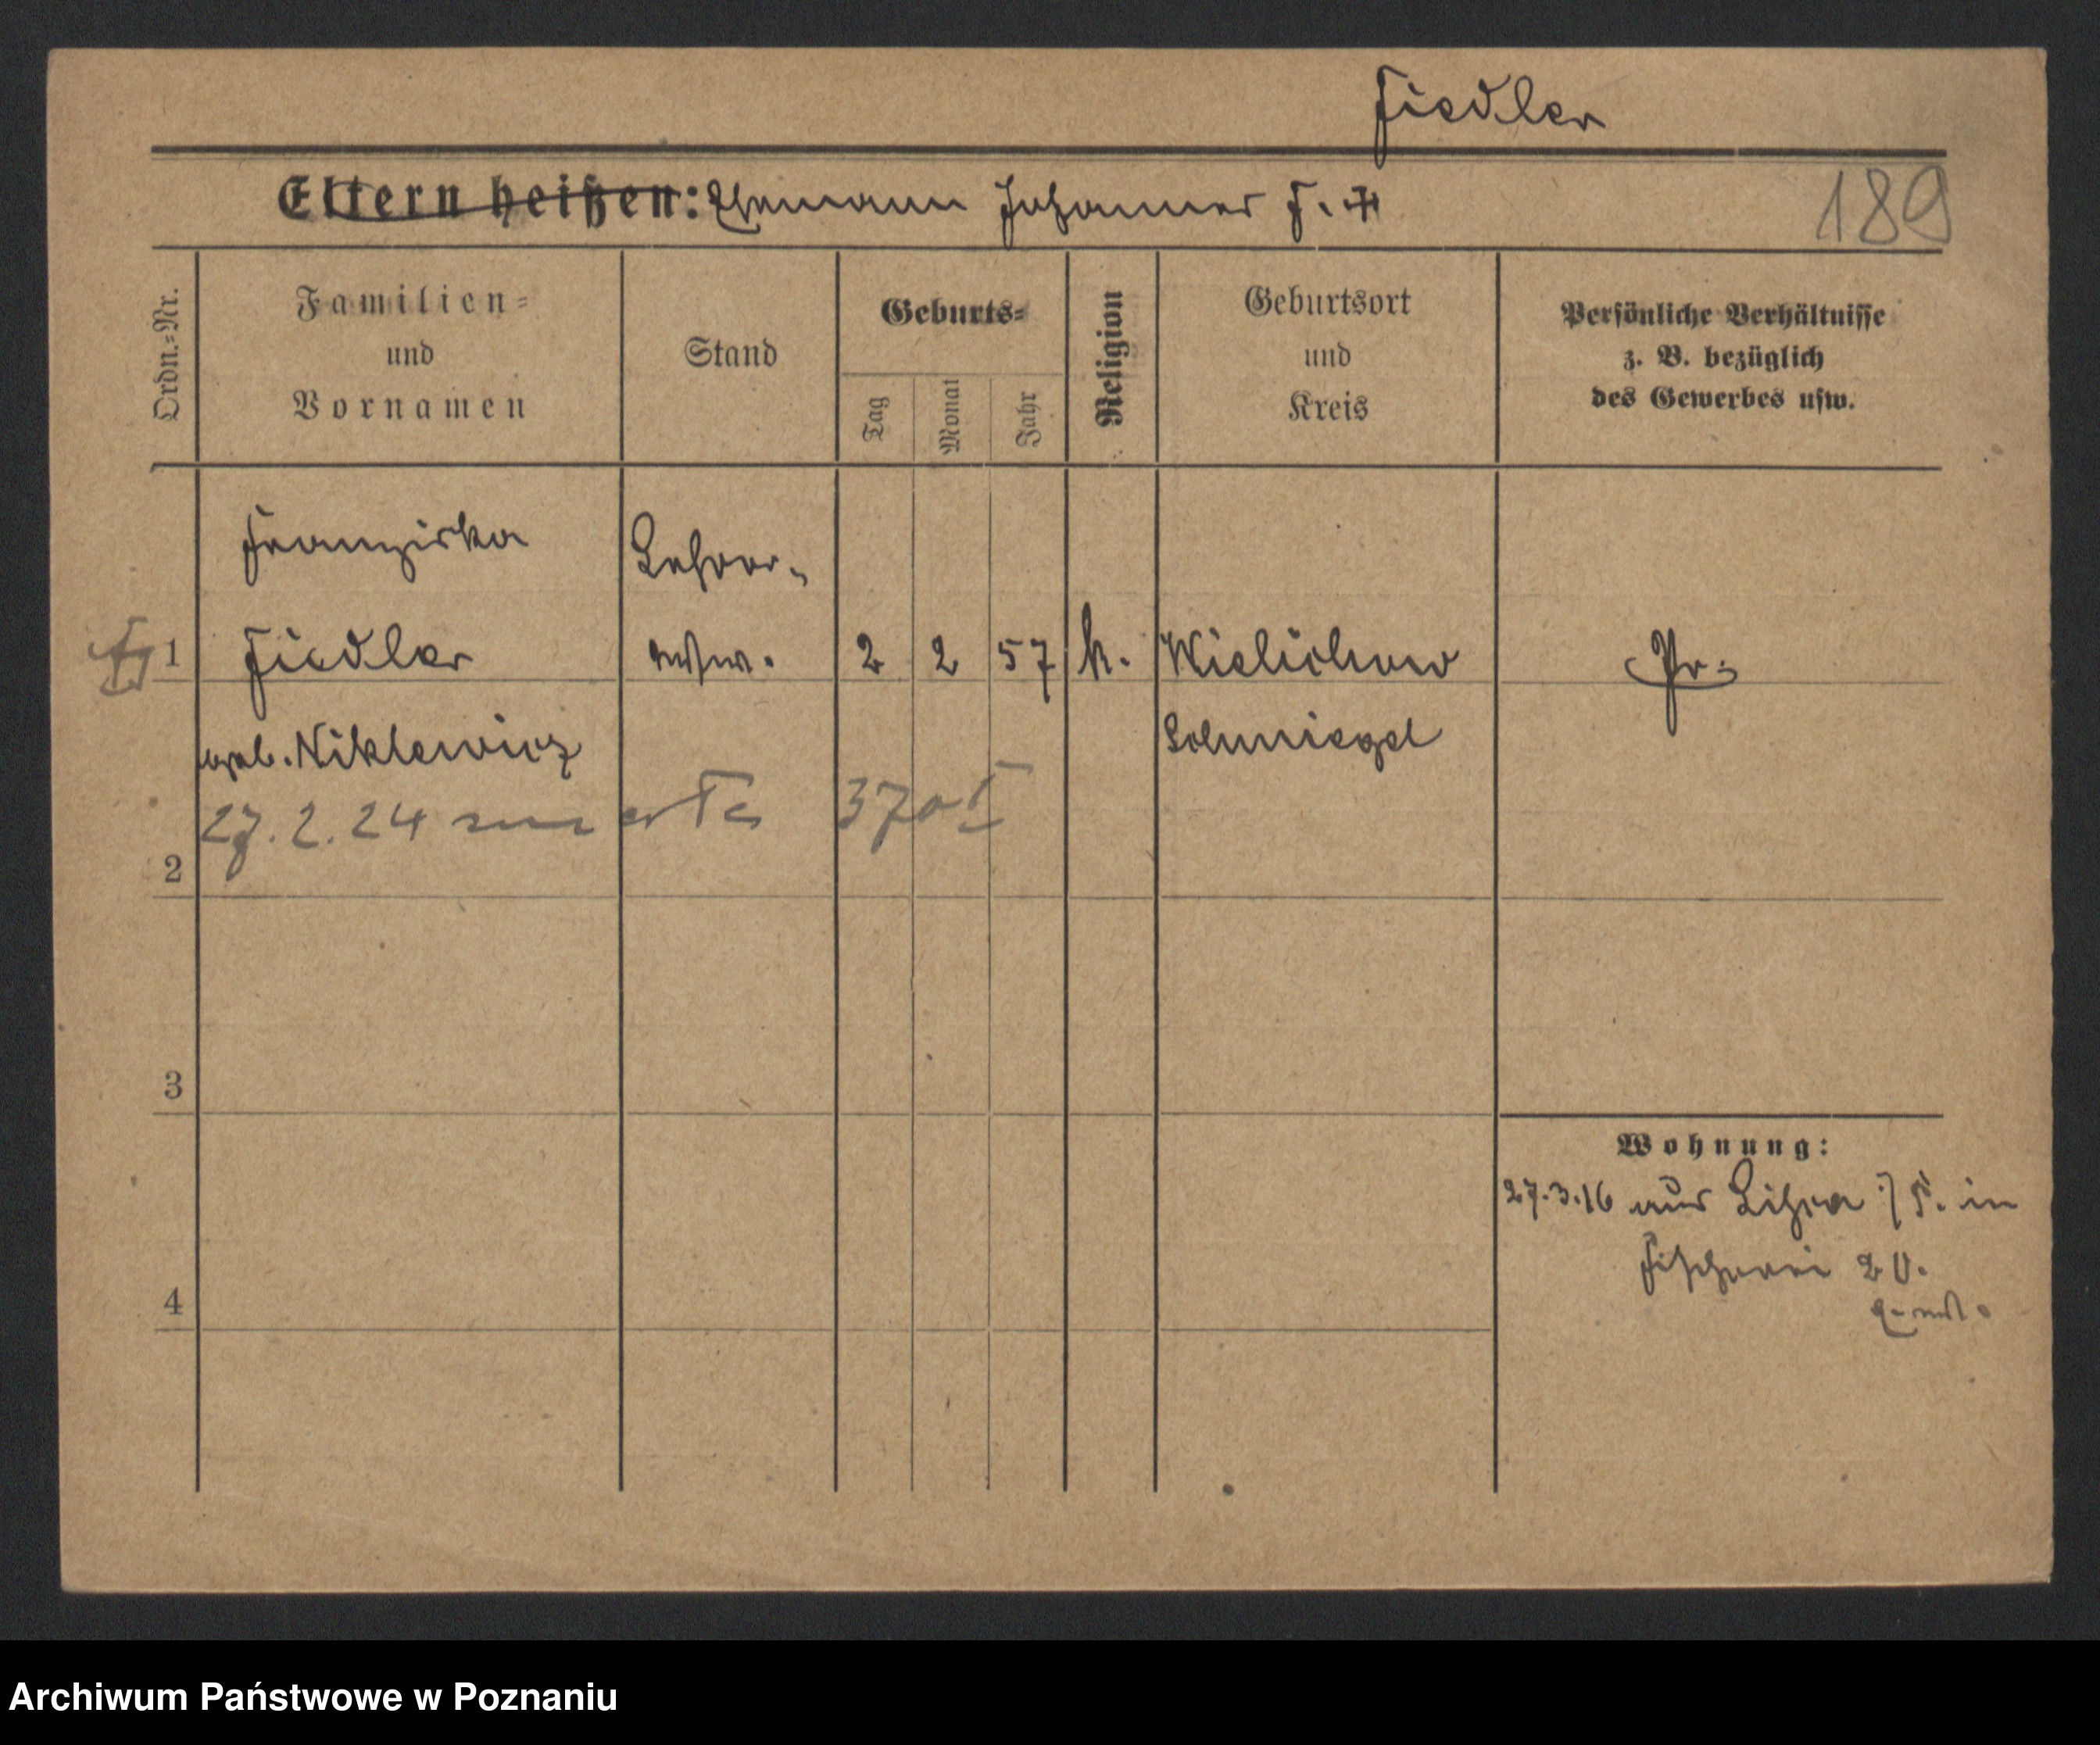 Fiedler
Eltern heißen: Ehemann Johannes F. ✝
189
Ordn.-Nr.
Familien-
und
Vornamen
Stand
Geburts-
Tag
Monat
Jahr
Religion
Geburtsort
und
Kreis
Persönliche Verhältnisse
z. B. bezüglich
des Gewerbes usw.
Franziska
Lehrer-
1 Fiedler
wtwe. 2 2 57 k. Wielichowo
Pr.
geb. Niklewicz
Schmiegel
27.2.24
2
3
Wohnung:
27.3.16 aus F. in
Fischerei 20.
4
Archiwum Państwowe w Poznaniu